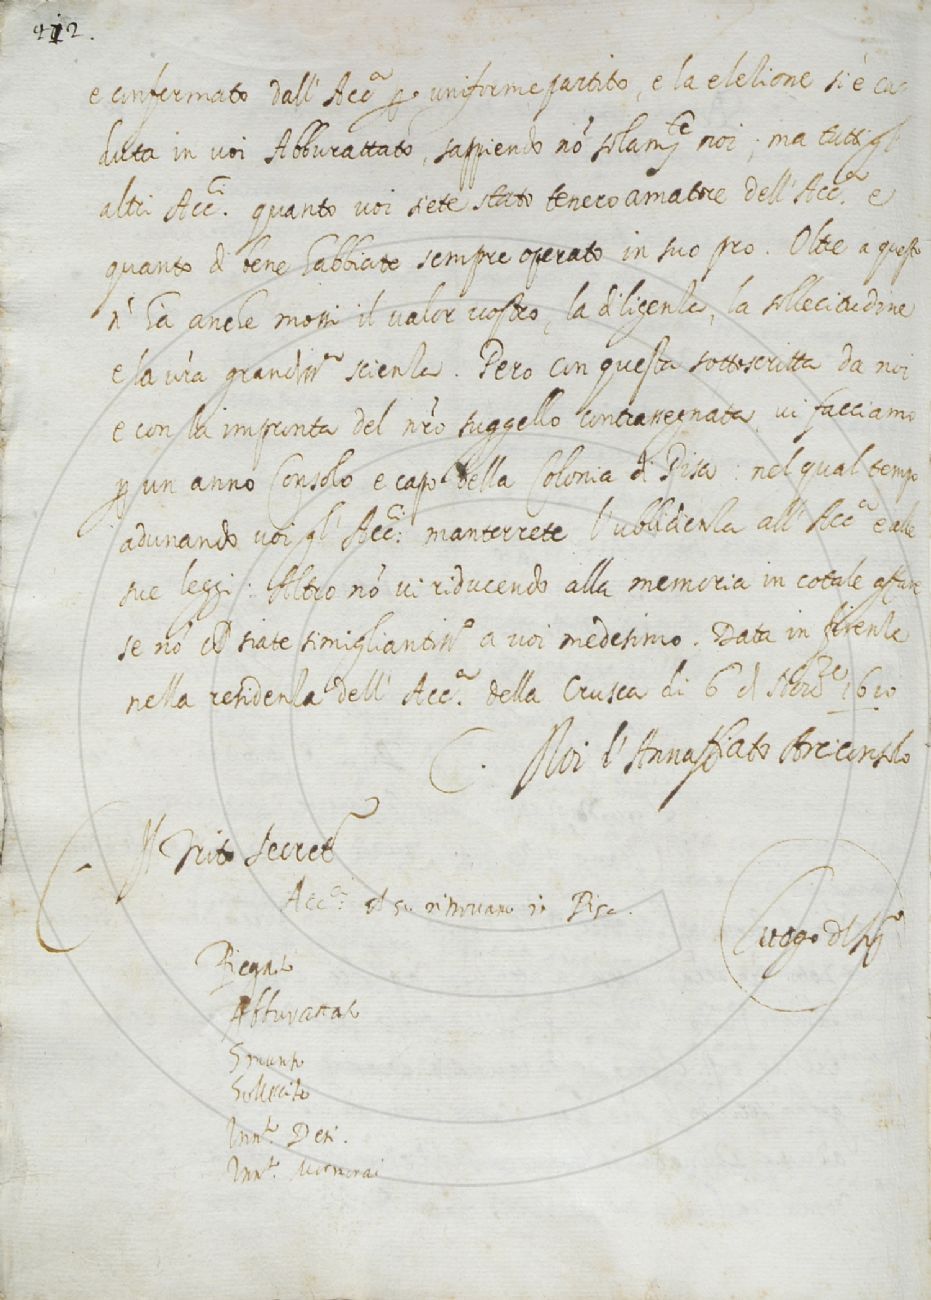 212.
e confermato dall' Acc.a p uniforme partito, e la elezione si è ca-
duta in voi Abburattato, sappiendo nō solam.te noi, ma tutti gl'
altri Acc.ci quanto voi siete stato tenero amatore dell' Acc.a e
quanto di bene habbiate sempre operato in suo pro. Oltre a questo
n' ha anche mossi il valor vostro, la diligenza, la sollecitudine
e la vr̄a grandiss.a scienza. Però con questa sottoscritta da noi
e con la impronta del nr̄o suggello contrassegnata vi facciamo
p un anno Consolo e capo della Colonia di Pisa: nel qual tempo
adunando voi gl' Acc.ci manterrete l'ubbidienza all' Acc.a e alle
sue leggi: Altro nō vi riducendo alla memoria in cotale affare
se nō ch siate simigliantiss.o a voi medesimo. Data in Firenze
nella residenza dell' Acc.a della Crusca di 6 d 1610
Noi l' Arciconsolo
Il Trito Secret.o
Acc.ci ch si ritrovano in Pisa.
Abburattato
Smunto
Sollecito
Inn.to Deti.
Inn.to
Luogo del